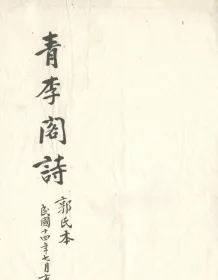 青李阁詩
郭氏本
民國十四年七月